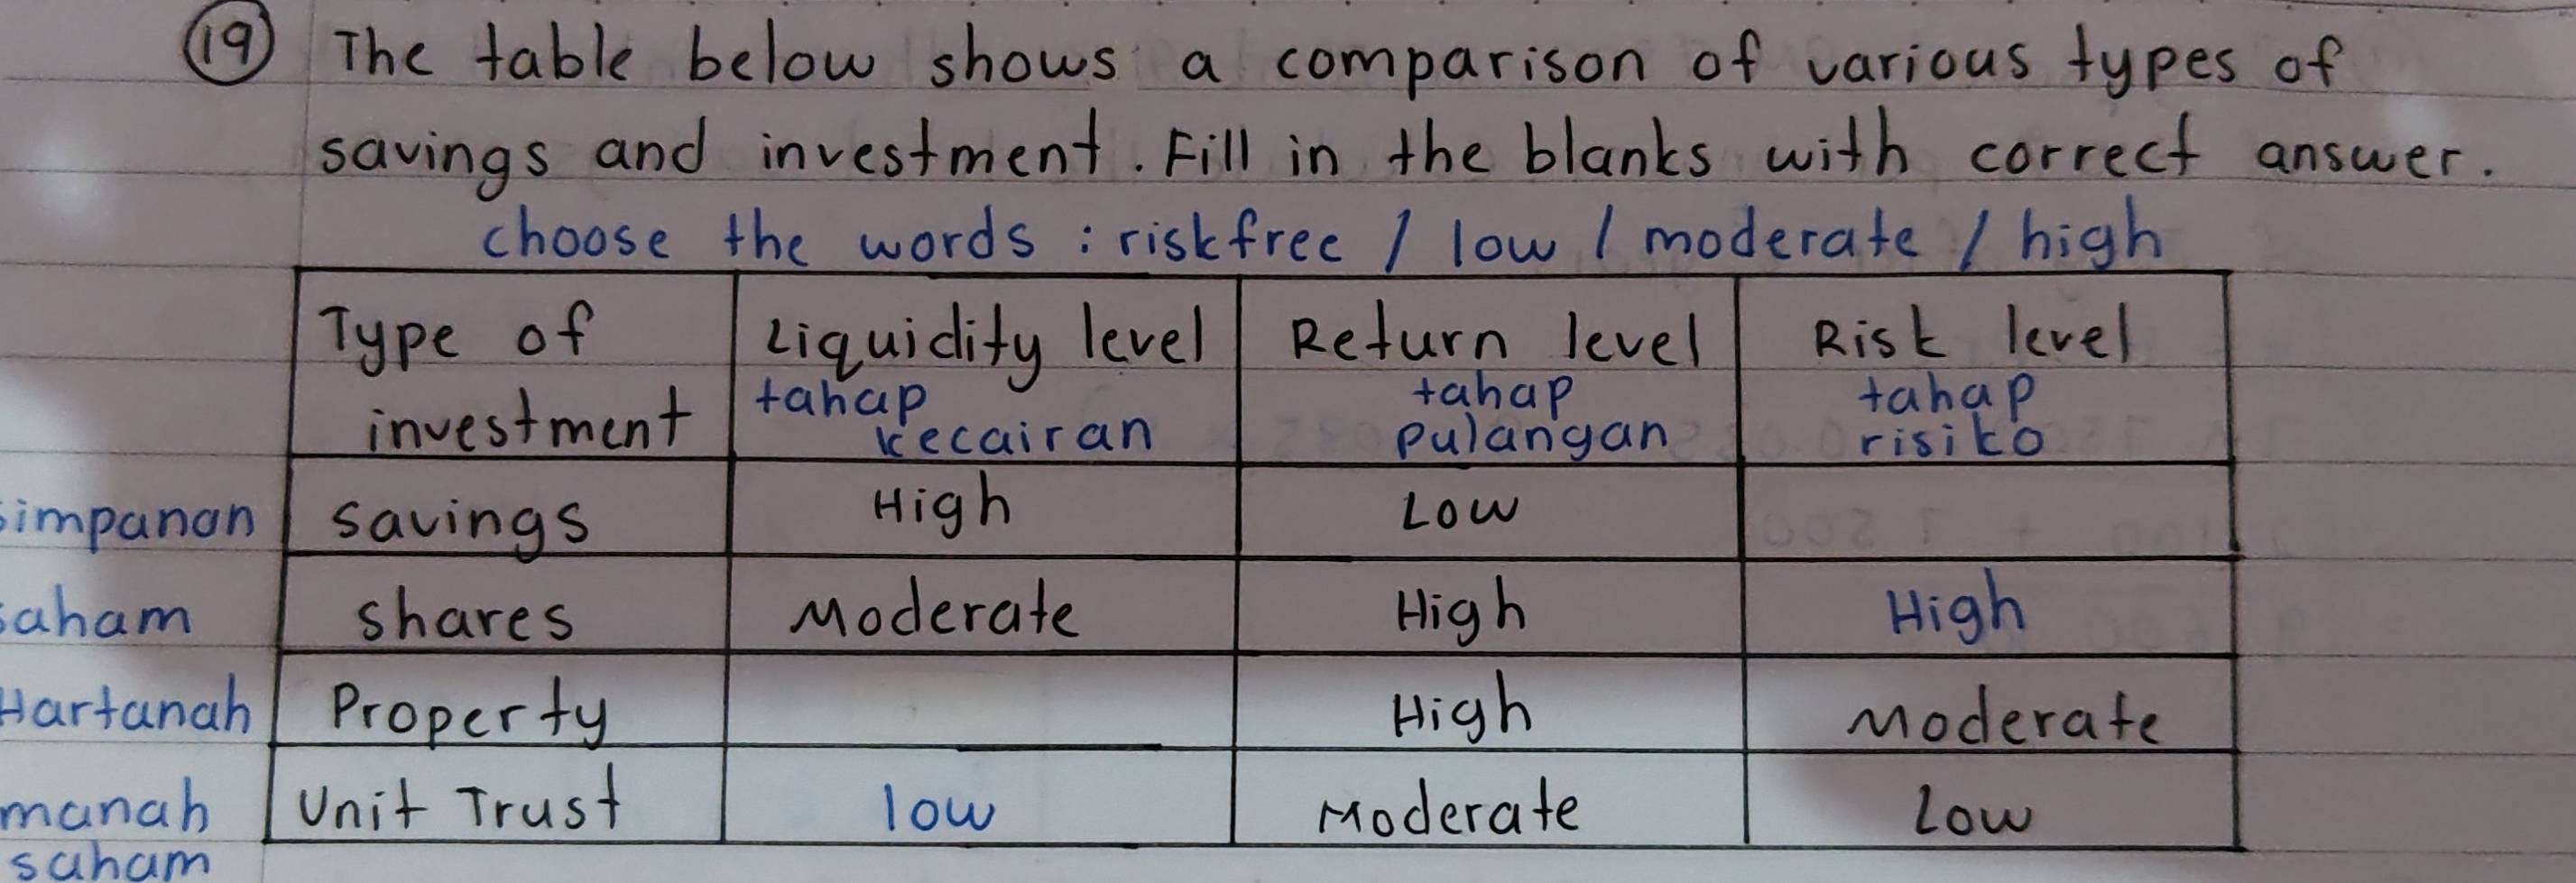 19 The table below shows a comparison of various types of
savings and investment. Fill in the blanks with correct answer.
choose the words : riskfree / low / moderate / high
Type of investment Liquidity level tahap kecairan Return level tahap pulangan Risk level tahap risiko
simpanan savings High Low
saham shares Moderate High High
Hartanah Property High Moderate
manah saham Unit Trust low Moderate Low